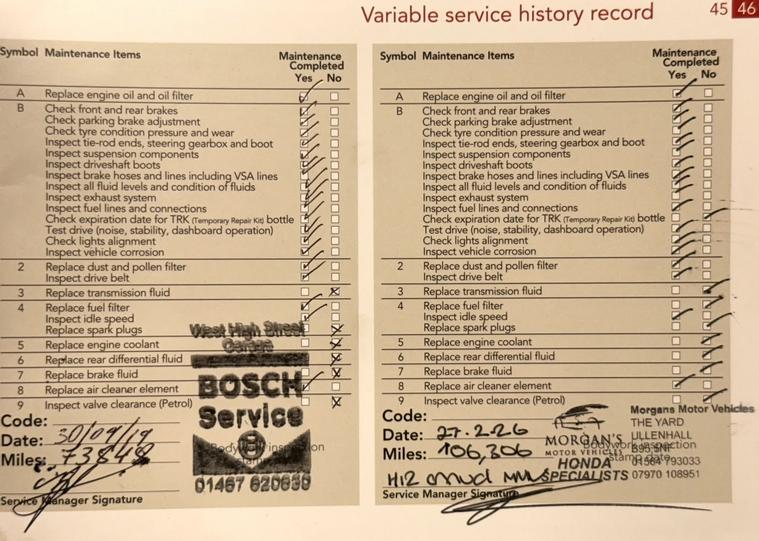 Variable service history record 45 46
Symbol Maintenance Items Maintenance Completed Yes No
A Replace engine oil and oil filter
B Check front and rear brakes
Check parking brake adjustment
Check tyre condition pressure and wear
Inspect tie-rod ends, steering gearbox and boot
Inspect suspension components
Inspect driveshaft boots
Inspect brake hoses and lines including VSA lines
Inspect all fluid levels and condition of fluids
Inspect exhaust system
Inspect fuel lines and connections
Check expiration date for TRK (Temporary Repair Kit) bottle
Test drive (noise, stability, dashboard operation)
Check lights alignment
Inspect vehicle corrosion
2 Replace dust and pollen filter
Inspect drive belt
3 Replace transmission fluid
4 Replace fuel filter
Inspect idle speed
Replace spark plugs
5 Replace engine coolant
6 Replace rear differential fluid
7 Replace brake fluid
8 Replace air cleaner element
9 Inspect valve clearance (Petrol)
West High Street
Garage
BOSCH
Service
Bodywork inspection
stamp
01467 620830
Code:
Date: 30/09/19
Miles: 73848
Service Manager Signature
Symbol Maintenance Items Maintenance Completed Yes No
A Replace engine oil and oil filter
B Check front and rear brakes
Check parking brake adjustment
Check tyre condition pressure and wear
Inspect tie-rod ends, steering gearbox and boot
Inspect suspension components
Inspect driveshaft boots
Inspect brake hoses and lines including VSA lines
Inspect all fluid levels and condition of fluids
Inspect exhaust system
Inspect fuel lines and connections
Check expiration date for TRK (Temporary Repair Kit) bottle
Test drive (noise, stability, dashboard operation)
Check lights alignment
Inspect vehicle corrosion
2 Replace dust and pollen filter
Inspect drive belt
3 Replace transmission fluid
4 Replace fuel filter
Inspect idle speed
Replace spark plugs
5 Replace engine coolant
6 Replace rear differential fluid
7 Replace brake fluid
8 Replace air cleaner element
9 Inspect valve clearance (Petrol)
Code:
Date: 27.2.26
Miles: 106,306
Service Manager Signature
MORGAN'S
MOTOR VEHICLES
HONDA
SPECIALISTS
Morgans Motor Vehicles
THE YARD
ULLENHALL
Bodywork inspection
B95 5NF
stamp date
01564 793033
07970 108951